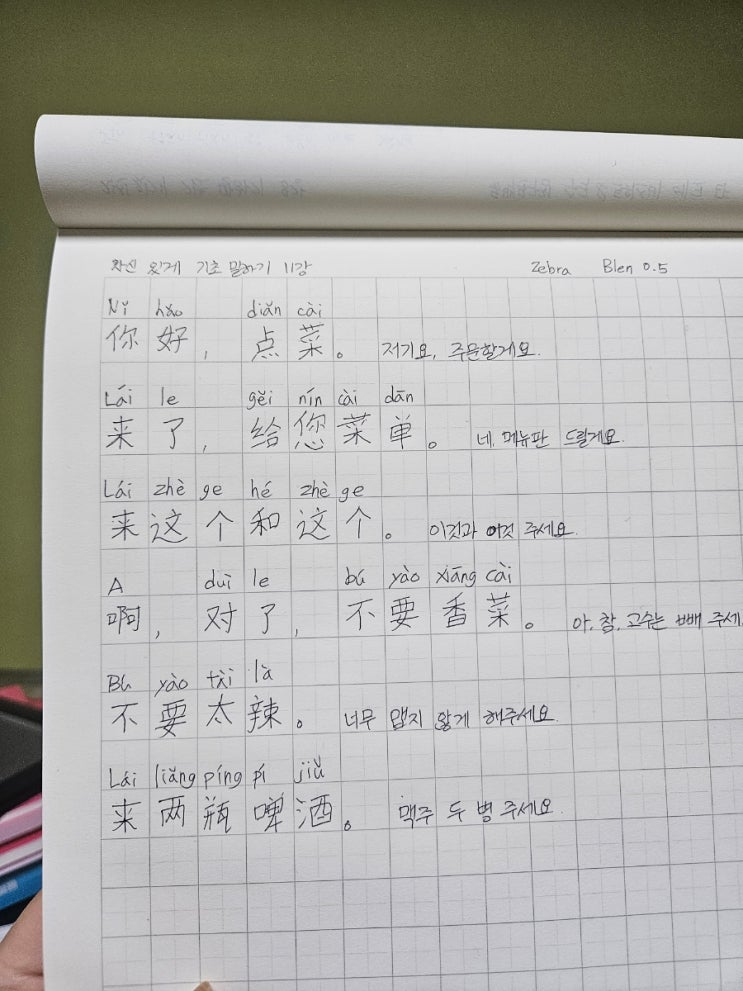 자신 있게 기초 말하기 11강 Zebra Blen 0.5
Nǐ hǎo diǎn cài
你好, 点菜。 저기요, 주문할게요.
Lái le gěi nín cài dān
来了, 给您菜单。 네, 메뉴판 드릴게요.
Lái zhè ge hé zhè ge
来这个和这个。 이것과 이것 주세요.
A duì le bú yào xiāng cài
啊, 对了, 不要香菜。 아, 참, 고수는 빼 주세
Bú yào tài là
不要太辣。 너무 맵지 않게 해주세요.
Lái liǎng píng pí jiǔ
来两瓶啤酒。 맥주 두 병 주세요.